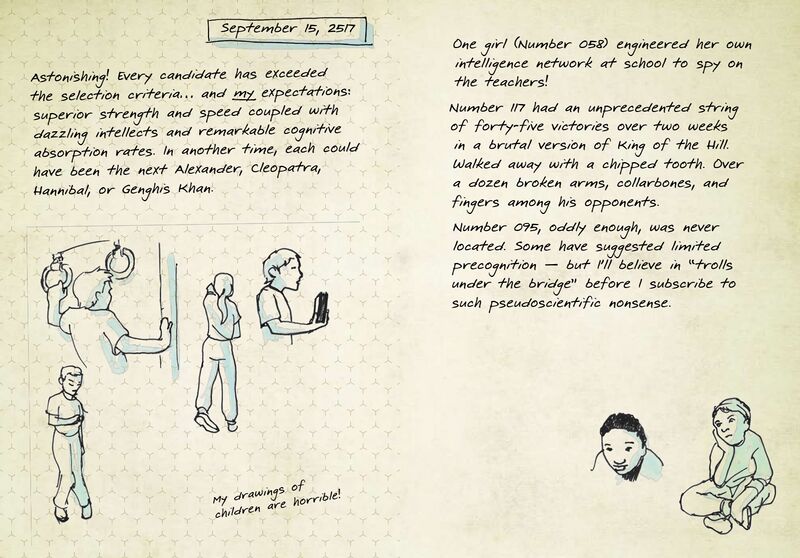 September 15, 2517
Astonishing! Every candidate has exceeded
the selection criteria... and my expectations:
superior strength and speed coupled with
dazzling intellects and remarkable cognitive
absorption rates. In another time, each could
have been the next Alexander, Cleopatra,
Hannibal, or Genghis Khan.
My drawings of
children are horrible!
One girl (Number 058) engineered her own
intelligence network at school to spy on
the teachers!
Number 117 had an unprecedented string
of forty-five victories over two weeks
in a brutal version of King of the Hill.
Walked away with a chipped tooth. Over
a dozen broken arms, collarbones, and
fingers among his opponents.
Number 095, oddly enough, was never
located. Some have suggested limited
precognition — but I'll believe in "trolls
under the bridge" before I subscribe to
such pseudoscientific nonsense.